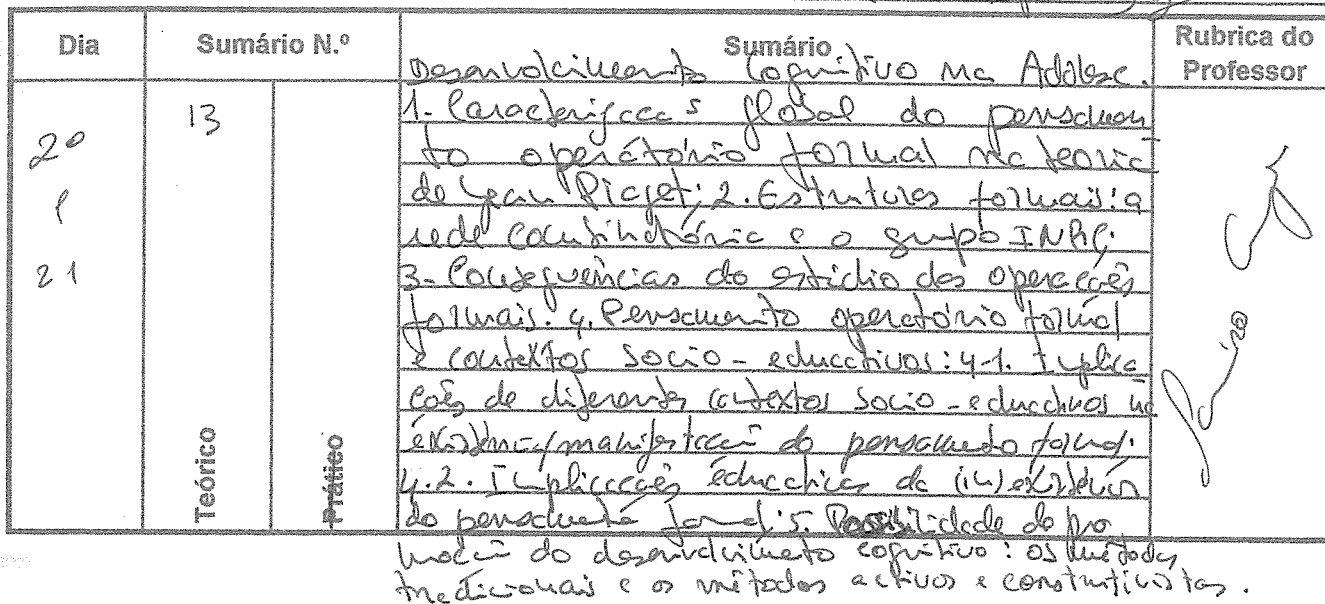 Dia Sumário N.º Sumário Rubrica do Professor
Desenvolvimento Cognitivo na Adolesc.
13 1. Características global do pensamen
20 to operatório formal na teoria
de Jean Piaget; 2. Estruturas formais: a
rede combinatória e o grupo INRC;
21 3- Consequências do estádio das operações
formais. 4. Pensamento operatório formal
e contextos socio-educativos: 4-1. Implica
ções de diferentes contextos socio-educativos na
existência/manifestação do pensamento formal;
4.2. Implicações educativas da (in)existência
do pensamento formal; 5. Possibilidade de pro
moção do desenvolvimento cognitivo: os métodos
tradicionais e os métodos activos e construtivistas.
Teórico
Prático